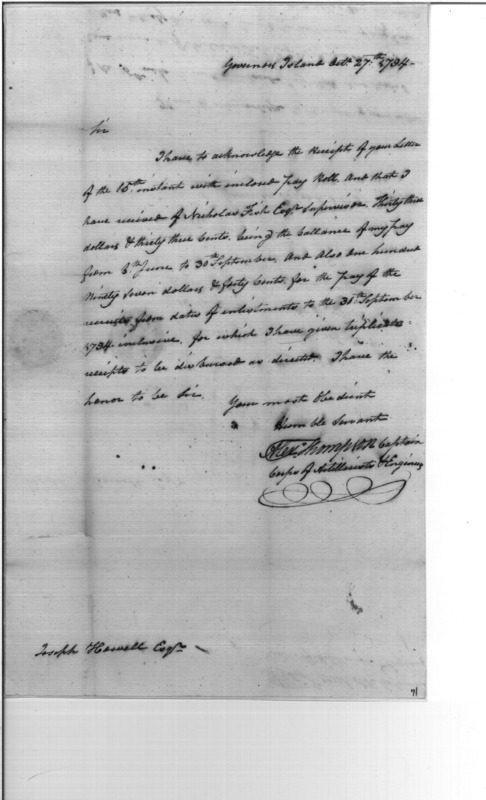 Governors Island Octr. 27th. 1794-
Sir
I have to acknowledge the Receipt of your Letter
of the 18th instant with inclosed pay Roll. And that I
have received of Nicholas Fish Esqr. Supervisor. Thirty three
dollars & thirty three Cents. being the ballance of my pay
from 6th June to 30th September. And also one hundred
Ninety Seven dollars & forty Cents. for the pay of the
recruits from dates of enlistments to the 31st September
1794 inclusive, for which I have given triplicate
receipts to be disbursed as directed. I have the
honor to be Sir.
Your most Obedient
Humble Servant
Alexr. Thompson Captain
Corps of Artillerists & Engineers
Joseph Howell Esqr.
71